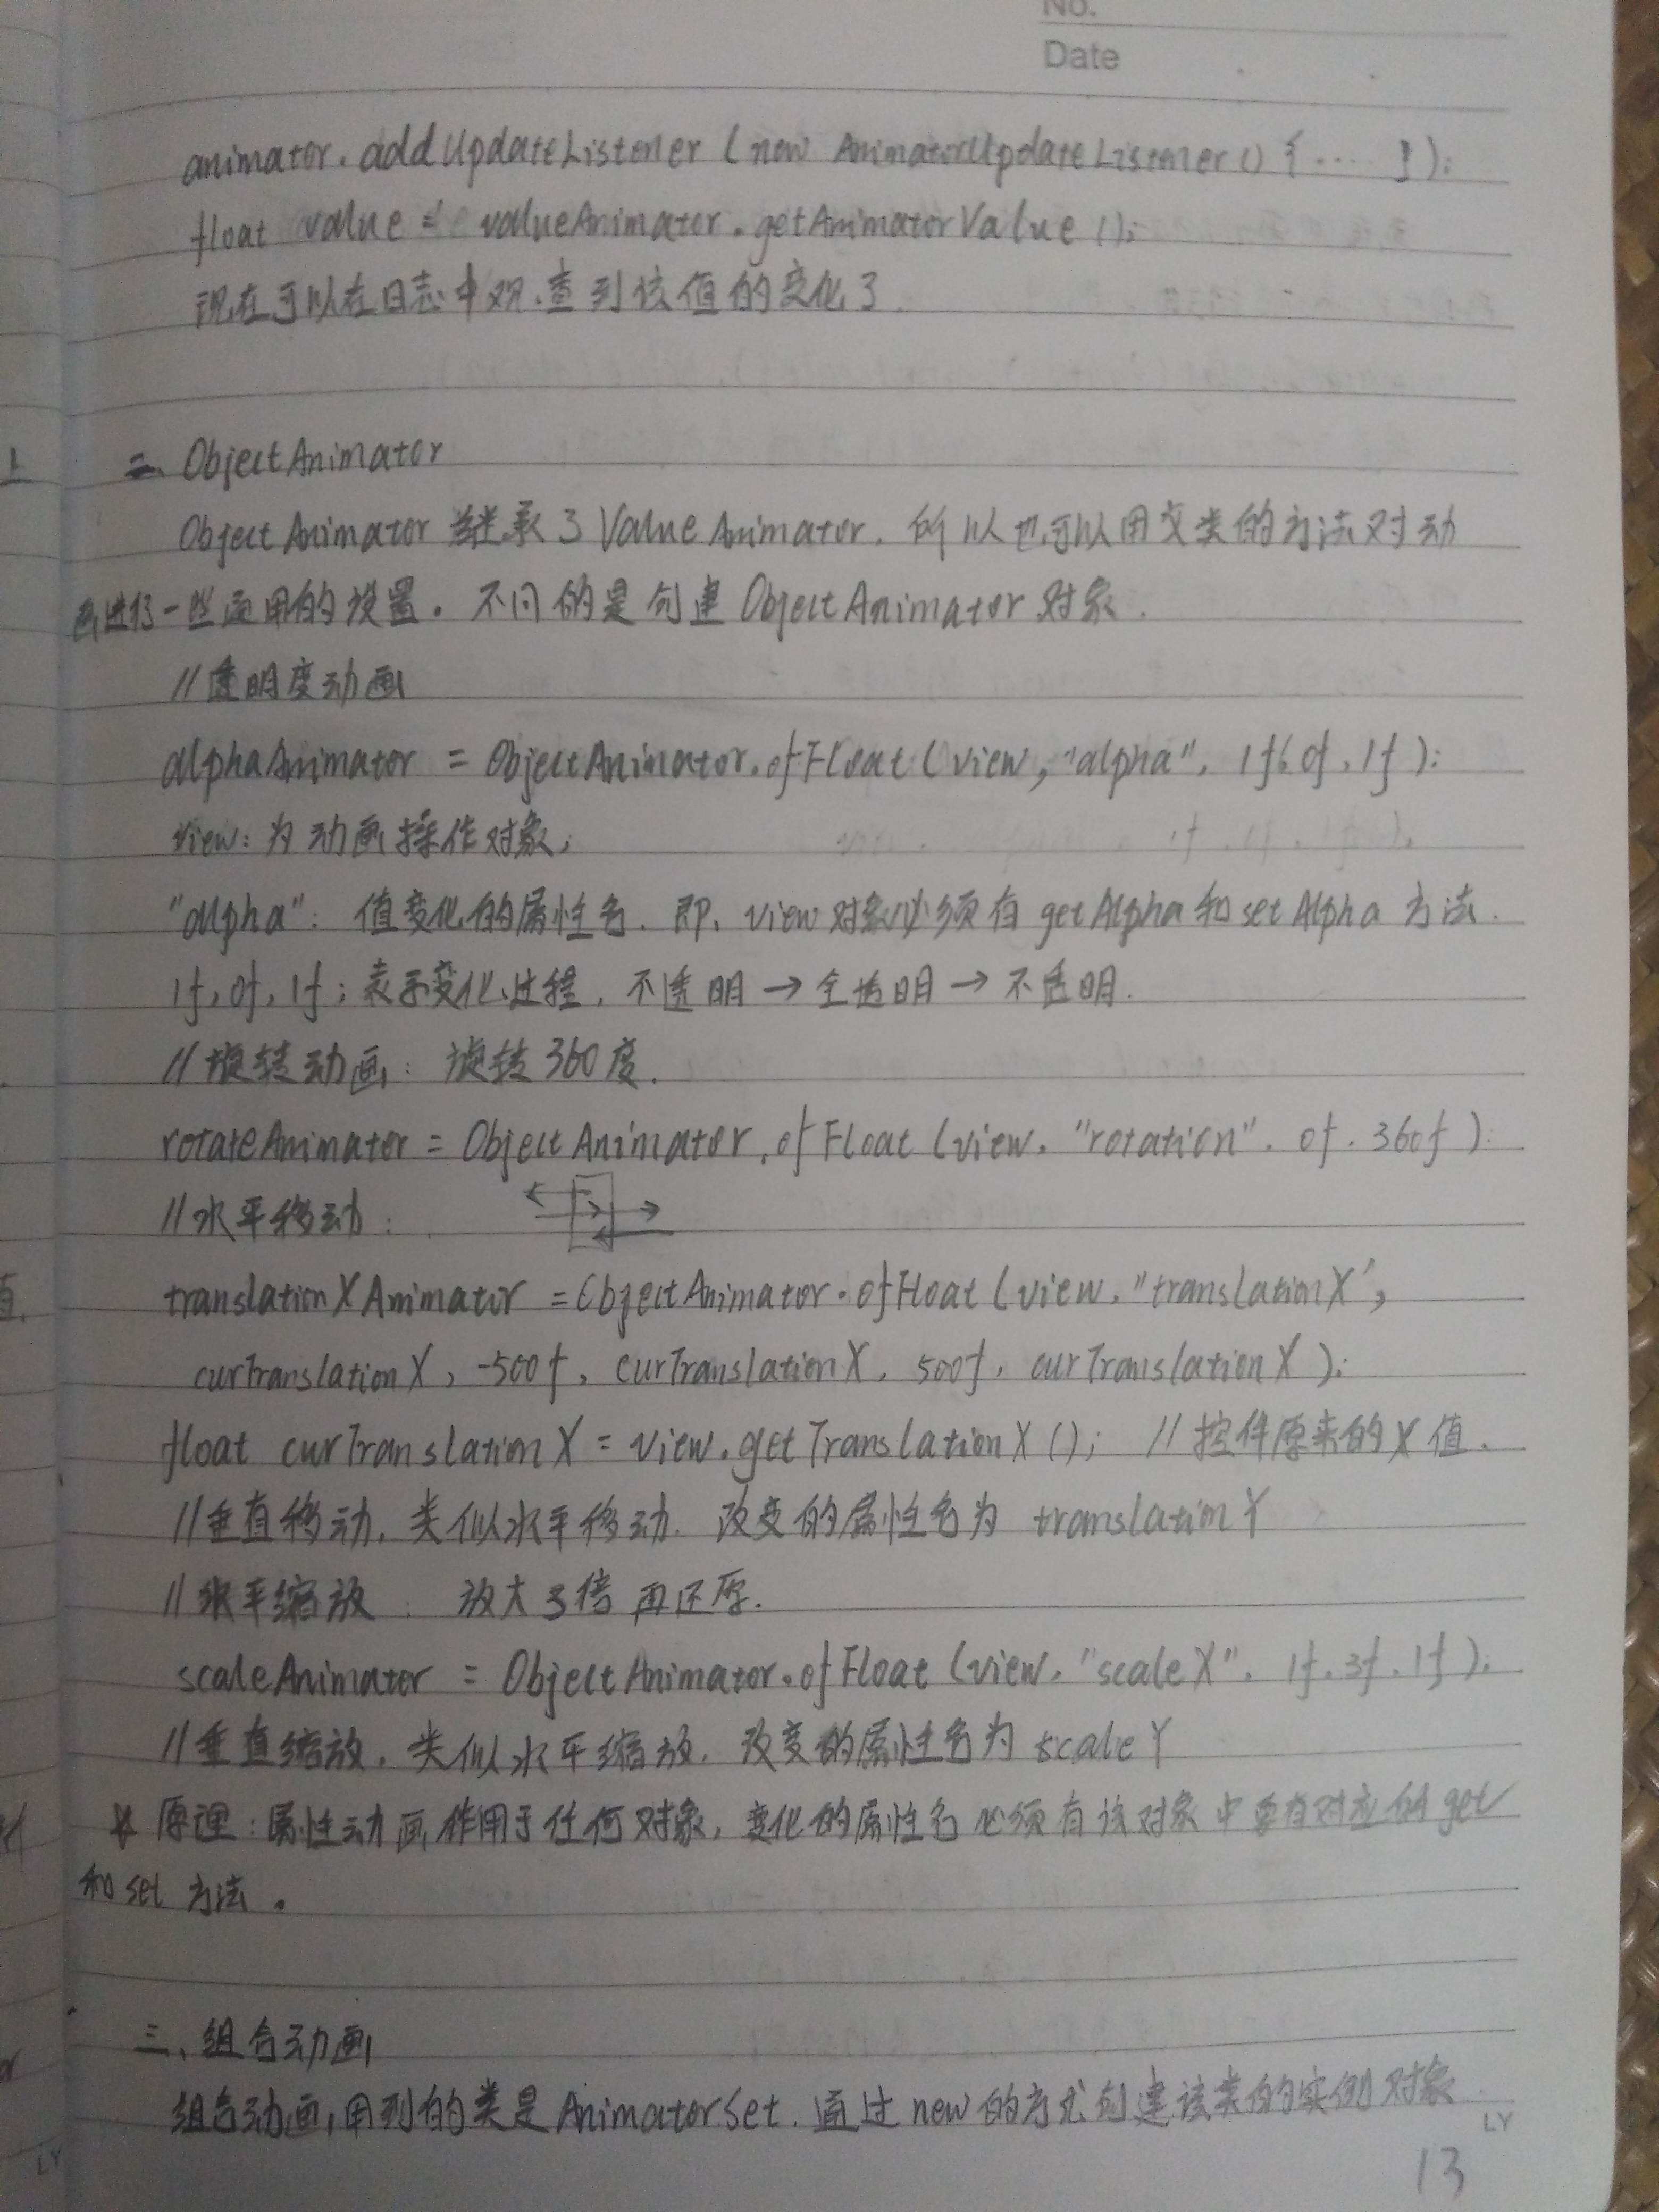 No.
Date
animator.addUpdateListener (new AnimatorUpdateListener() { .... });
float value = valueAnimator.getAnimatorValue ();
现在可以在日志中观查到该值的变化了
二、ObjectAnimator
ObjectAnimator 继承了 ValueAnimator, 所以也可以用父类的方法对动
画进行一些通用的设置。不同的是创建 ObjectAnimator 对象.
//透明度动画
alphaAnimator = ObjectAnimator.ofFloat (view, "alpha", 1f, 0f, 1f );
view: 为动画操作对象;
"alpha": 值变化的属性名. 即, view对象必须有 getAlpha 和 setAlpha 方法.
1f, 0f, 1f; 表示变化过程, 不透明 → 全透明 → 不透明.
//旋转动画: 旋转 360 度.
rotateAnimator = ObjectAnimator.ofFloat (view, "rotation", 0f, 360f )
//水平移动:
translationXAnimator = ObjectAnimator.ofFloat (view, "translationX",
curTranslationX, -500f, curTranslationX, 500f, curTranslationX );
float curTranslationX = view.getTranslationX (); //控件原来的X值.
//垂直移动, 类似水平移动. 改变的属性名为 translationY
//水平缩放: 放大3倍再还原.
scaleAnimator = ObjectAnimator.ofFloat (view, "scaleX", 1f, 3f, 1f );
//垂直缩放, 类似水平缩放, 改变的属性名为 scaleY
* 原理: 属性动画作用于任何对象, 变化的属性名必须有该对象中要有对应的 get
和 set 方法。
三、组合动画
组合动画,用到的类是 AnimatorSet. 通过 new 的方式创建该类的实例对象
LY
LY
13